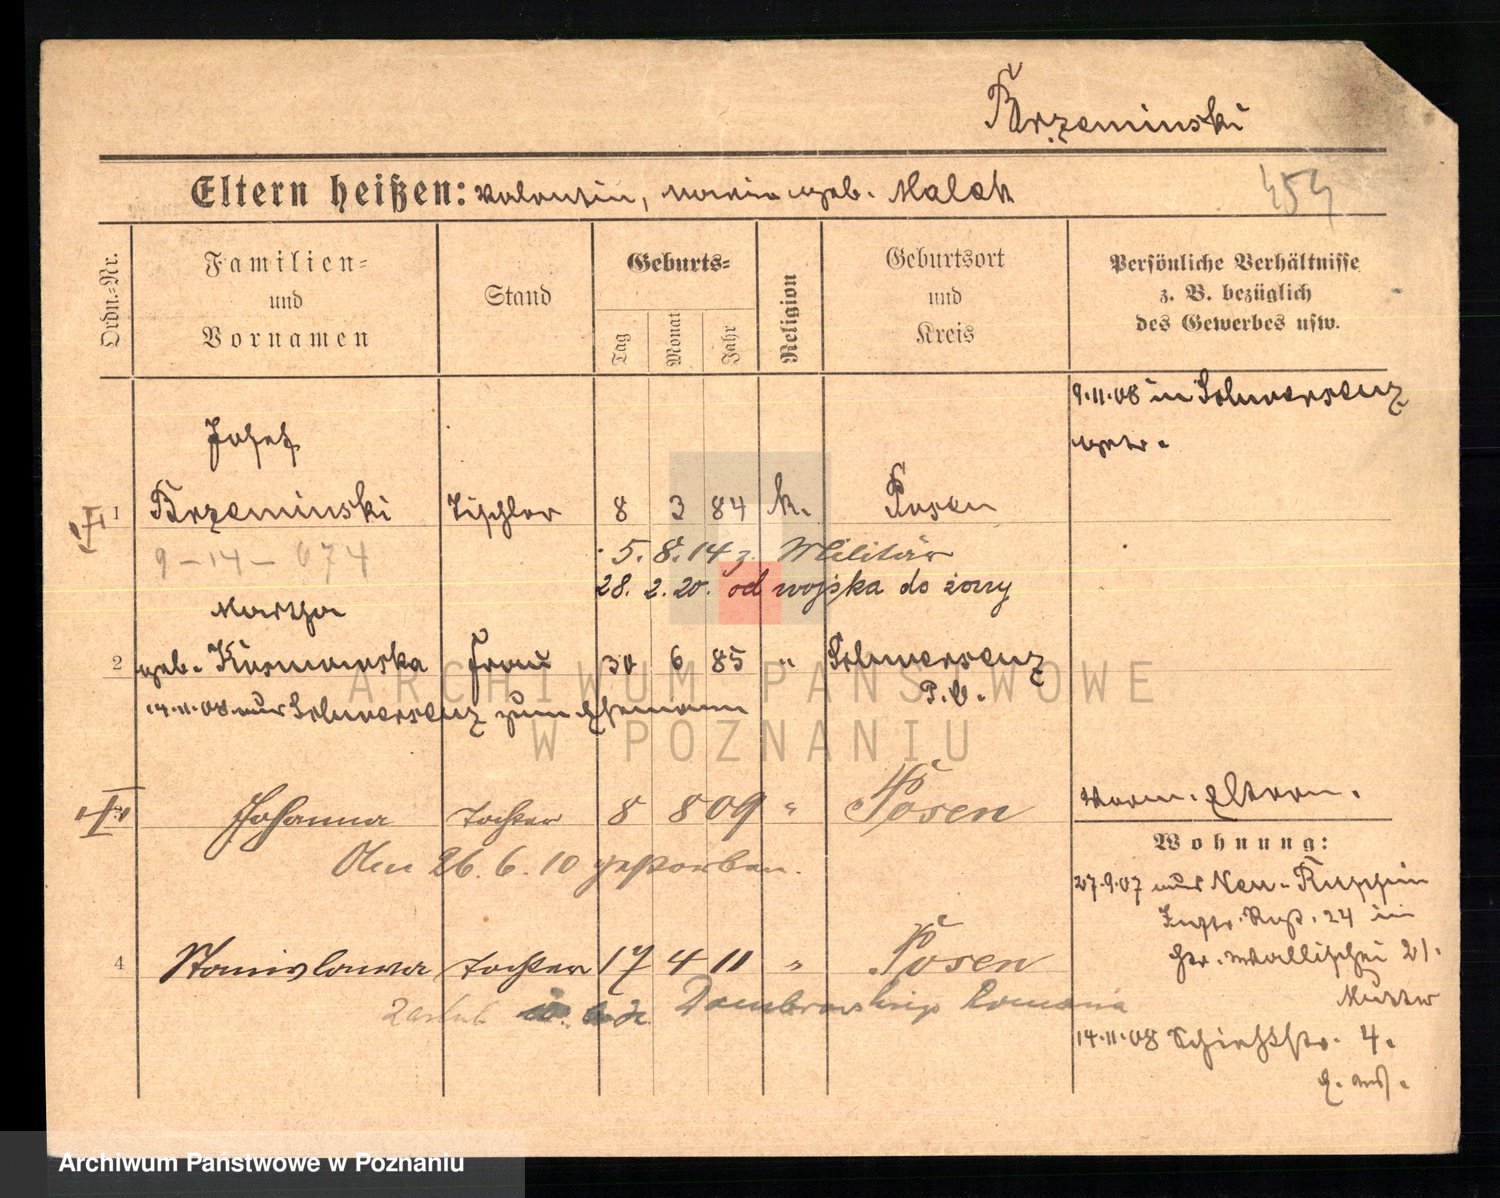 Brzeminski
Eltern heißen: Valentin, Maria geb. Malak
454
Ordn.-Nr.
Familien-
und
Vornamen
Stand
Geburts-
Tag
Monat
Jahr
Religion
Geburtsort
und
Kreis
Persönliche Verhältnisse
z. B. bezüglich
des Gewerbes usw.
9.11.08 in Schwersenz
getr.
Josef
1 Brzeminski Tischler 8 3 84 k. Posen
9-14-674
5.8.14 z. Militär
28. 2. 20. od wojska do żony
Martha
2 geb. Kusmowska Frau 30 6 85 " Schwersenz
P.O.
14.11.08 aus Schwersenz zum Ehemann
Johanna Tochter 8 8 09 " Posen
Am 26.6.10 gestorben.
4 Stanislawa Tochter 17 4 11 " Posen
Dombrowskiego Romana
Vorm. Eltern.
Wohnung:
27.9.07 aus Neu-Ruppin
Inftr. Rgt. 24 in
Gr. Wallischei 21.
Mutter
14.11.08 Schießstr. 4.
ARCHIWUM PAŃSTWOWE
W POZNANIU
Archiwum Państwowe w Poznaniu